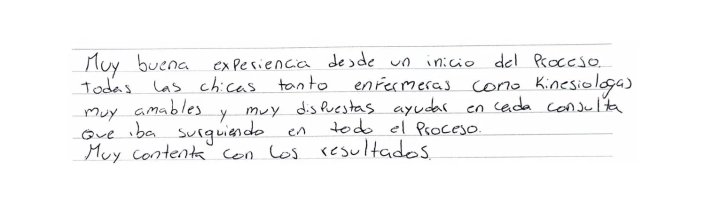 Muy buena experiencia desde un inicio del Proceso.
Todas las chicas tanto enfermeras como Kinesiologas
muy amables y muy dispuestas ayudar en cada consulta
que iba surguiendo en todo el Proceso.
Muy contenta con los resultados.